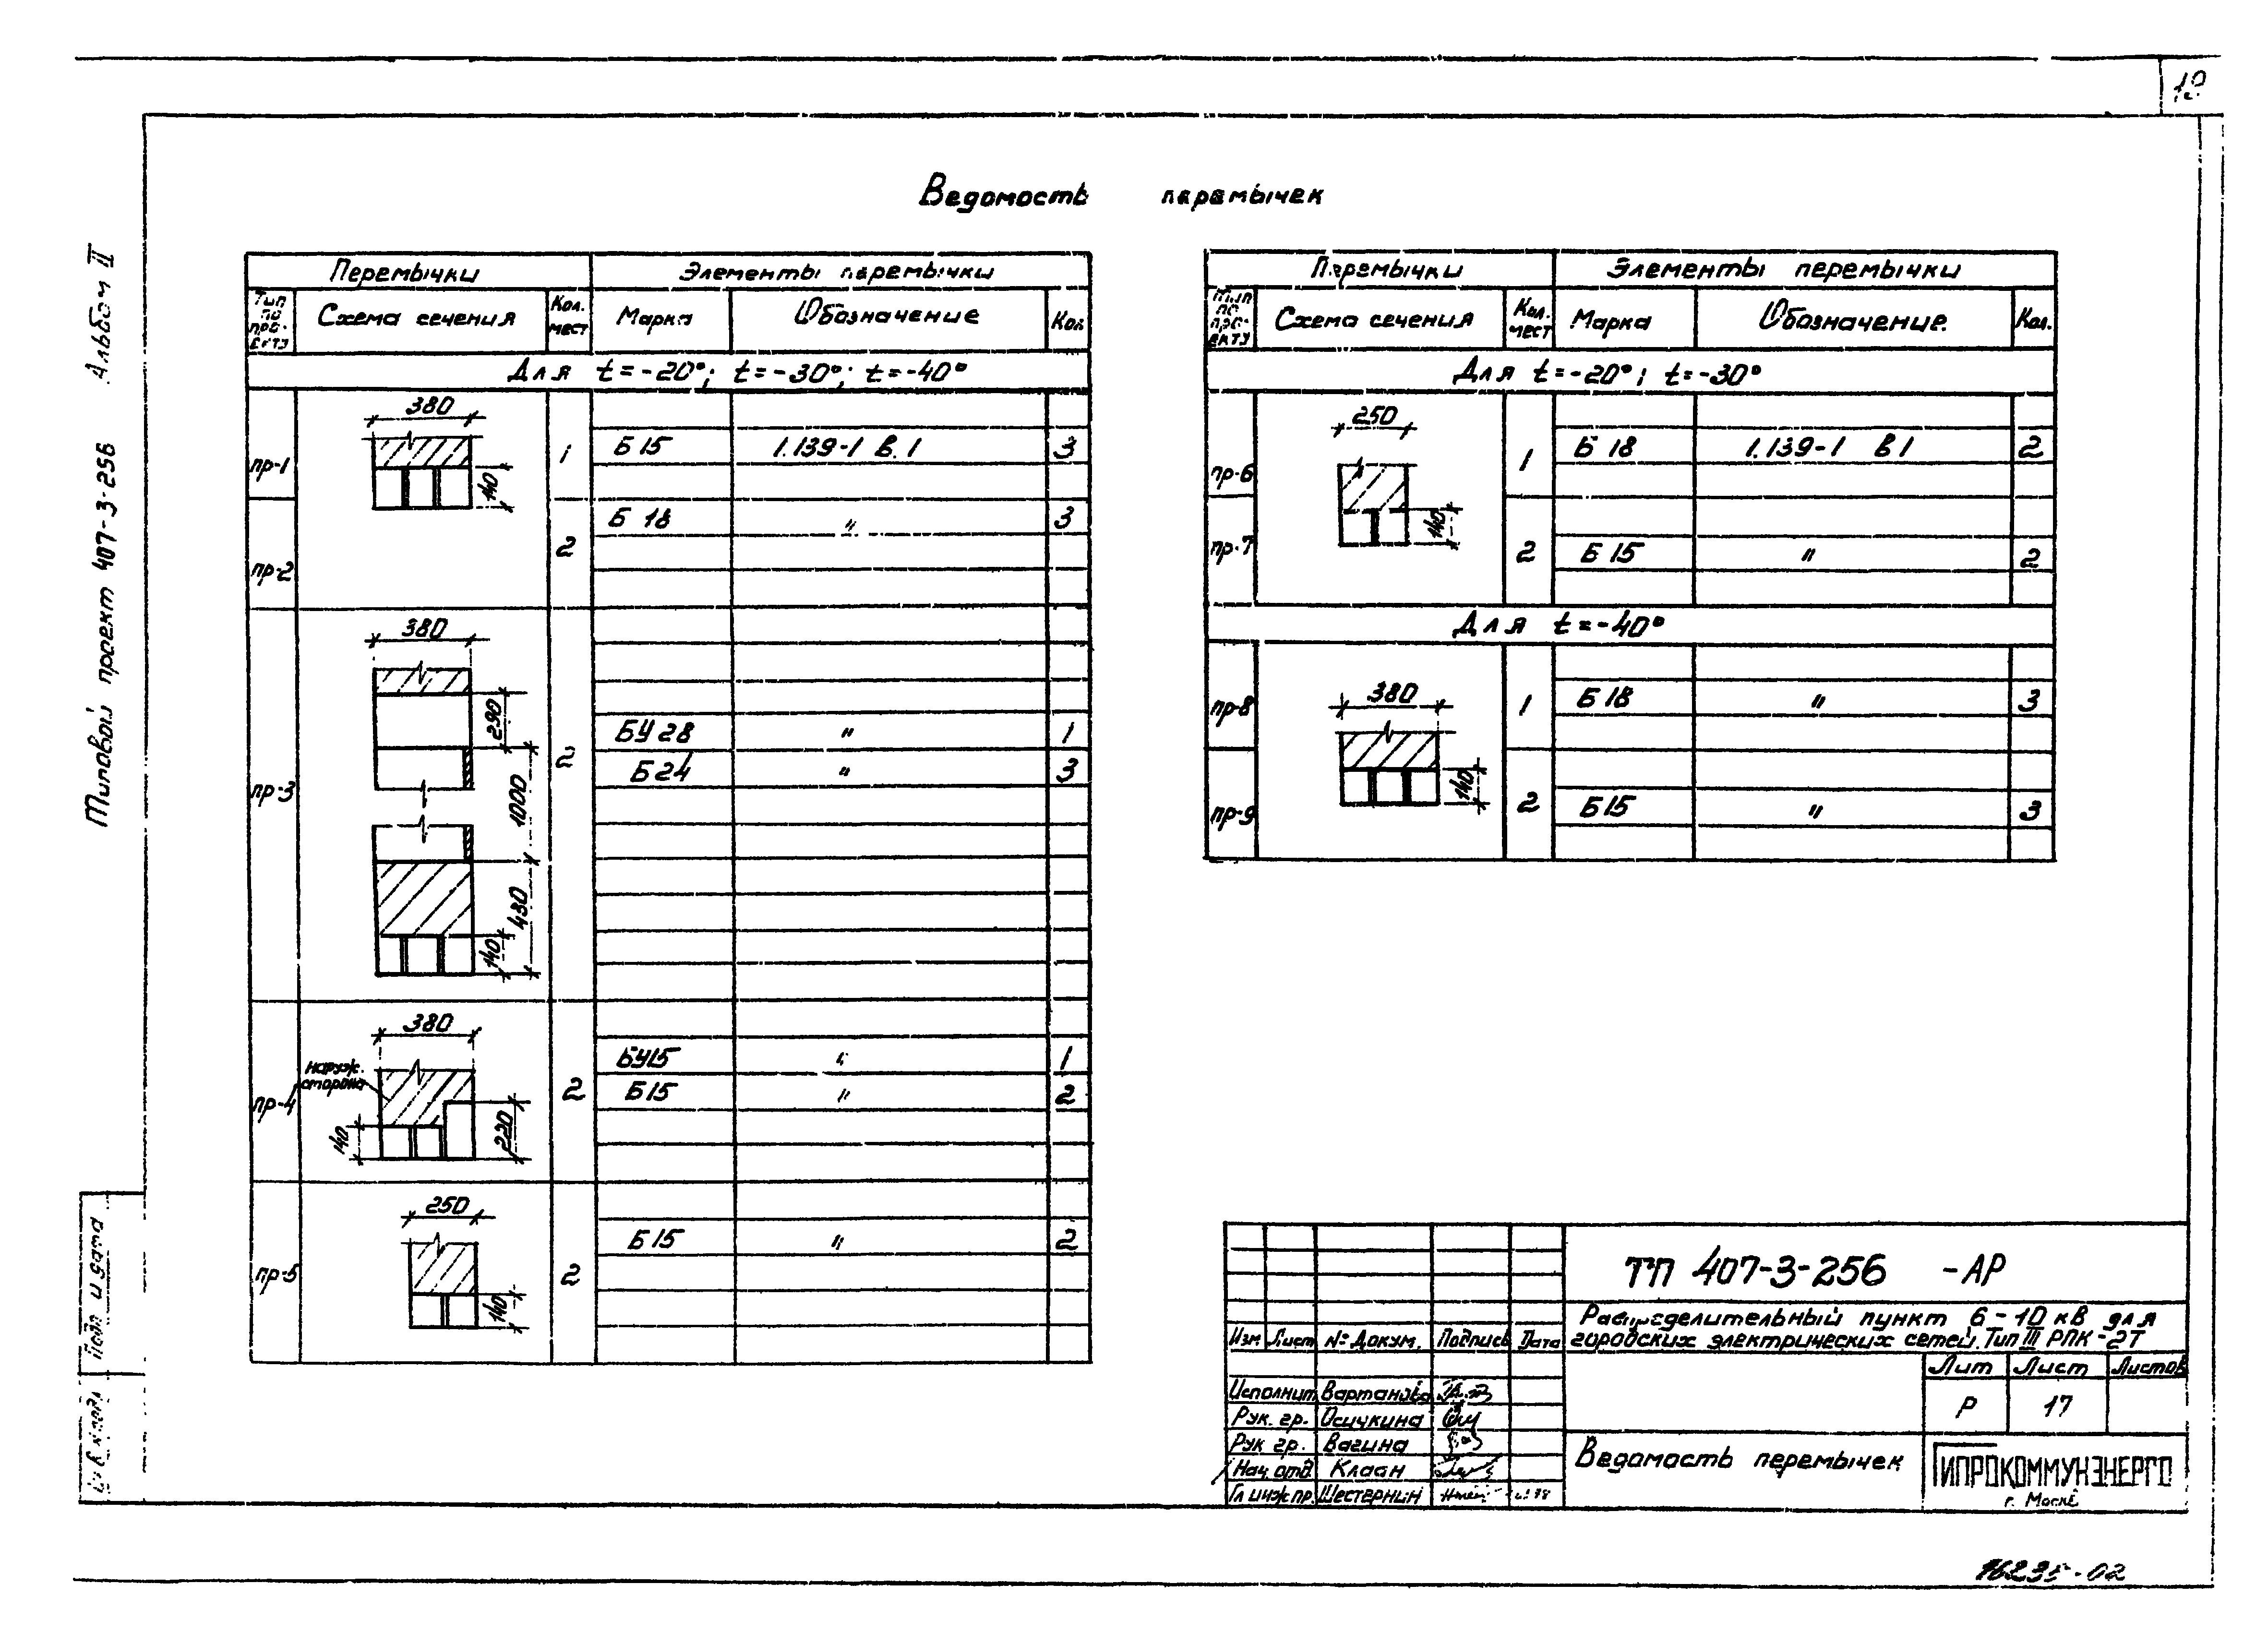 Ведомость перемычек
Альбом II
Типовой проект 407-3-256
Перемычки Элементы перемычки
Тип по проекту Схема сечения Кол. мест Марка Обозначение Кол
Для t=-20°; t=-30°; t=-40°
380
140
пр-1 1 Б 15 1.139-1 в.1 3
пр-2 2 Б 18 " 3
380
290
1000
430
140
пр-3 2 БУ 28 " 1
Б 24 " 3
380
наруж.
сторона
140
220
пр-4 2 БУ15 " 1
Б15 " 2
250
140
пр-5 2 Б15 " 2
Перемычки Элементы перемычки
Тип по проекту Схема сечения Кол. мест Марка Обозначение. Кол.
Для t=-20°; t=-30°
250
140
пр-6 1 Б 18 1.139-1 в1 2
пр-7 2 Б 15 " 2
Для t=-40°
380
140
пр-8 1 Б 18 " 3
пр-9 2 Б15 " 3
ТП 407-3-256 -АР
Распределительный пункт 6-10 кВ для
городских электрических сетей. Тип III РПК-2Т
Изм Лист № Докум. Подпись Дата
Лит Лист Листов
Р 17
Исполнит. Вартанова
Рук. гр. Осичкина
Рук гр. Вагина
Нач. отд. Клаан
Гл инж пр. Шестернин
Ведомость перемычек
ГИПРОКОММУНЭНЕРГО
Подп и дата
16235-02